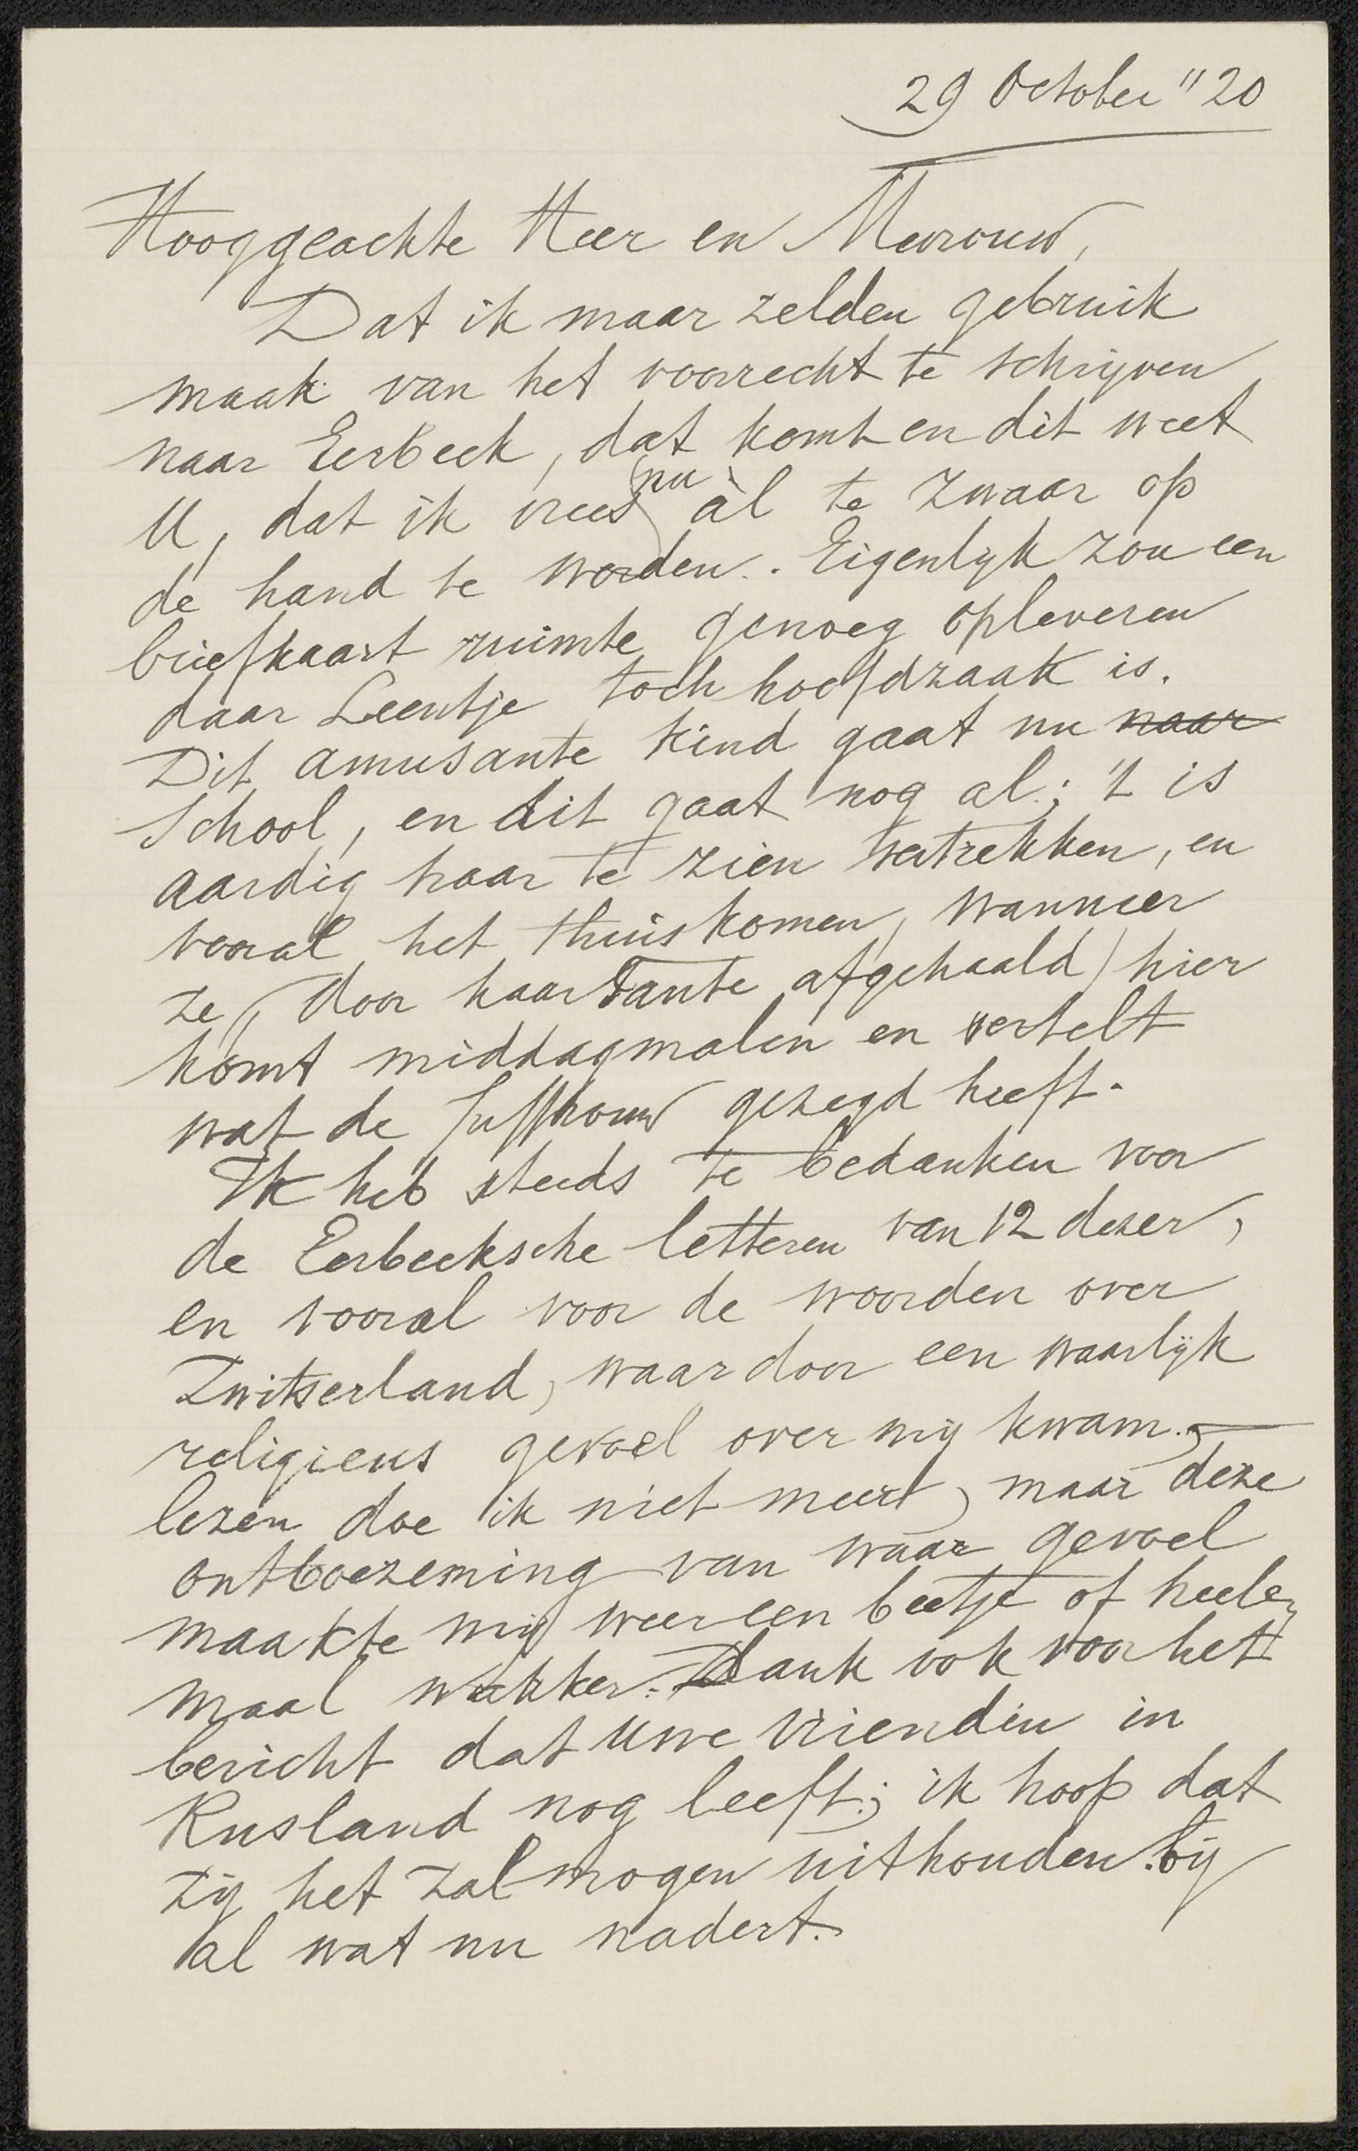 29 October "20
Hooggeachte Heer en Mevrouw,
Dat ik maar zelden gebruik
maak van het voorrecht te schrijven
naar Eerbeek, dat komt en dit weet
U, dat ik vrees nu àl te zwaar op
de hand te worden. Eigenlijk zou een
briefkaart ruimte genoeg opleveren
daar Leentje toch hoofdzaak is.
Dit amusante kind gaat nu naar
school, en dit gaat nog al; 't is
aardig haar te zien vertrekken, en
vooral het thuiskomen, wanneer
ze (door haar Tante afgehaald) hier
komt middagmalen en vertelt
wat de Juffrouw gezegd heeft.
Ik heb steeds te bedanken voor
de Eerbeeksche letteren van 12 dezer,
en vooral voor de woorden over
Zwitserland, waardoor een waarlijk
religieus gevoel over mij kwam. —
lezen doe ik niet meer, maar deze
ontboezeming van waar gevoel
maakte mij weer een beetje of heele-
maal wakker. Dank ook voor het
bericht dat Uwe Vriendin in
Rusland nog leeft; ik hoop dat
zij het zal mogen uithouden bij
al wat nu nadert.